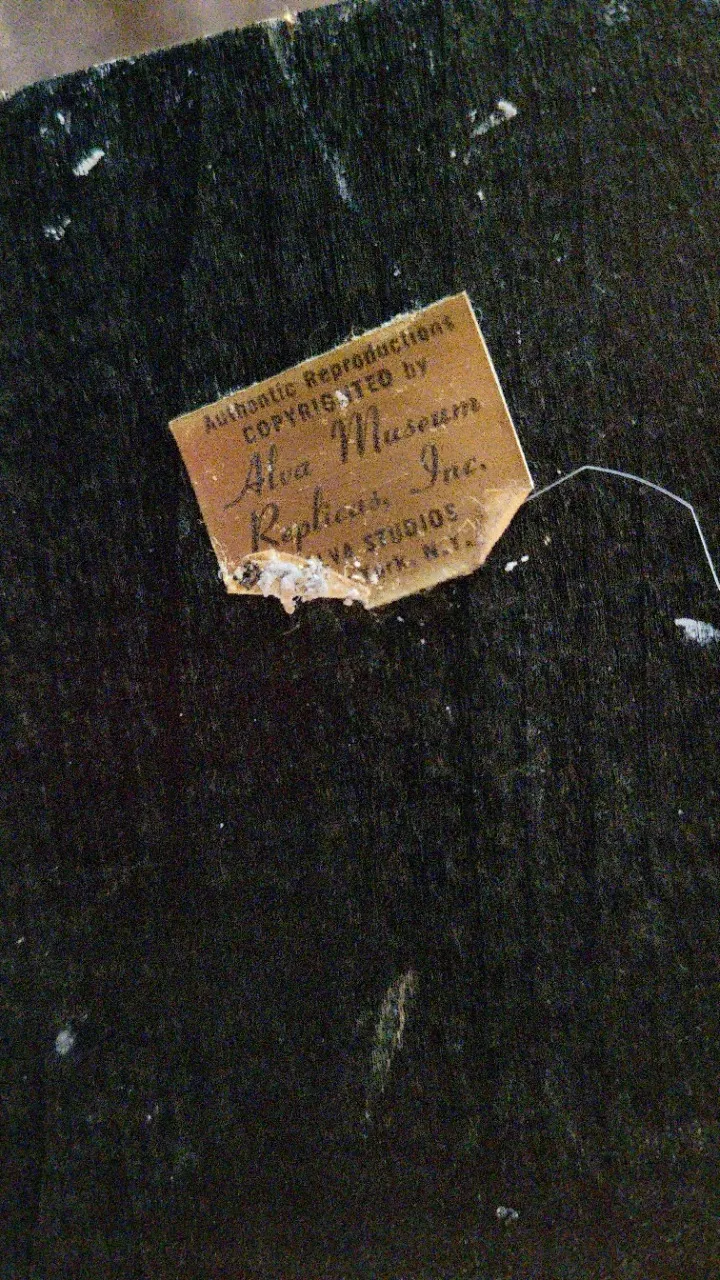 Authentic Reproductions
COPYRIGHTED by
Alva Museum
Replicas, Inc.
ALVA STUDIOS
York, N.Y.